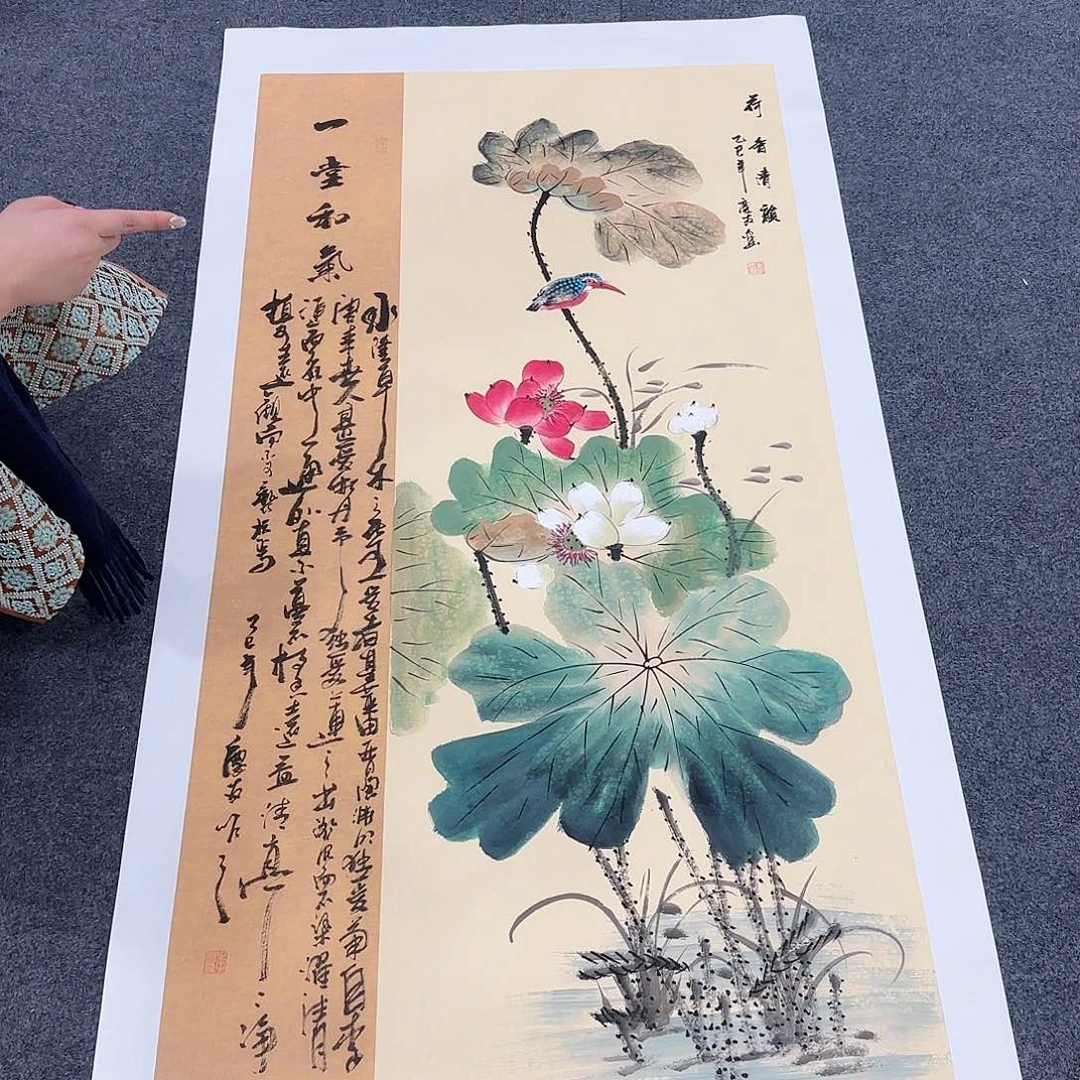 荷香清韻
乙巳年
一堂和氣
水陸草木之花可愛者甚蕃晉陶淵明獨愛菊自李
唐來世人甚愛牡丹予獨愛蓮之出淤泥而不染濯清
漣而不妖中通外直不蔓不枝香遠益清亭亭淨
植可遠觀而不可褻玩焉
乙巳年